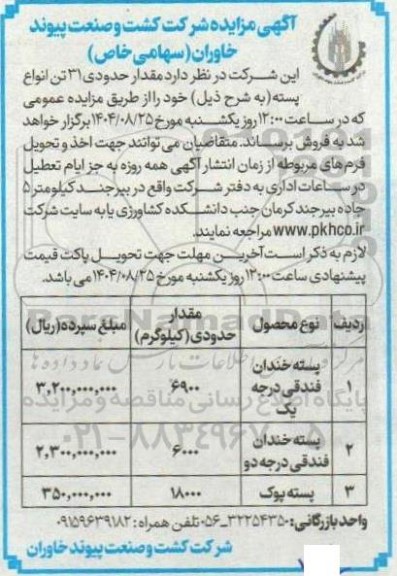 آگهی مزایده شرکت کشت و صنعت پیوند
خاوران (سهامی خاص)
این شرکت در نظر دارد مقدار حدودی ۳۱ تن انواع
پسته (به شرح ذیل) خود را از طریق مزایده عمومی
که در ساعت ۱۲:۰۰ روز یکشنبه مورخ ۱۴۰۴/۰۸/۲۵ برگزار خواهد
شد به فروش برساند. متقاضیان می توانند جهت اخذ و تحویل
فرم های مربوطه از زمان انتشار آگهی همه روزه به جز ایام تعطیل
در ساعات اداری به دفتر شرکت واقع در بیرجند کیلومتر ۵
جاده بیرجند کرمان جنب دانشکده کشاورزی یا به سایت شرکت
www.pkhco.ir مراجعه نمایند.
لازم به ذکر است آخرین مهلت جهت تحویل پاکت قیمت
پیشنهادی ساعت ۱۲:۰۰ روز یکشنبه مورخ ۱۴۰۴/۰۸/۲۵ می باشد.
ردیف نوع محصول مقدار حدودی (کیلوگرم) مبلغ سپرده (ریال)
۱ پسته خندان فندقی درجه یک ۶۹۰۰ ۳,۲۰۰,۰۰۰,۰۰۰
۲ پسته خندان فندقی درجه دو ۶۰۰۰ ۲,۳۰۰,۰۰۰,۰۰۰
۳ پسته پوک ۱۸۰۰۰ ۳۵۰,۰۰۰,۰۰۰
واحد بازرگانی: ۳۲۲۵۴۳۵۰-۰۵۶ تلفن همراه: ۰۹۱۵۹۶۳۹۱۸۲
شرکت کشت و صنعت پیوند خاوران
ParsNamadData
پایگاه اطلاع رسانی مناقصه و مزایده